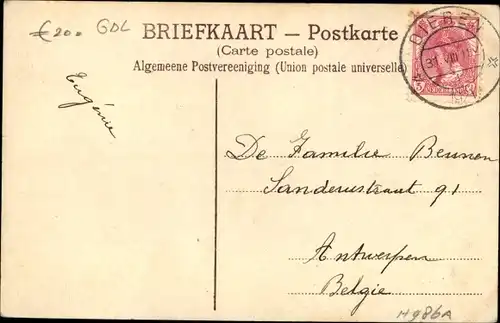 €20.= GDL
BRIEFKAART — Postkarte
(Carte postale)
Algemeene Postvereeniging (Union postale universelle)
DIEREN
31 VIII
Eugénie
De Familie Beunen
Sanderusstraat 91
Antwerpen
Belgie
H986A